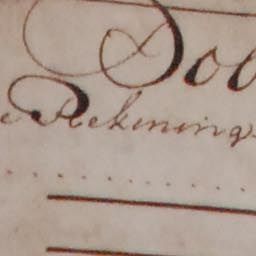 Doo
Rekening